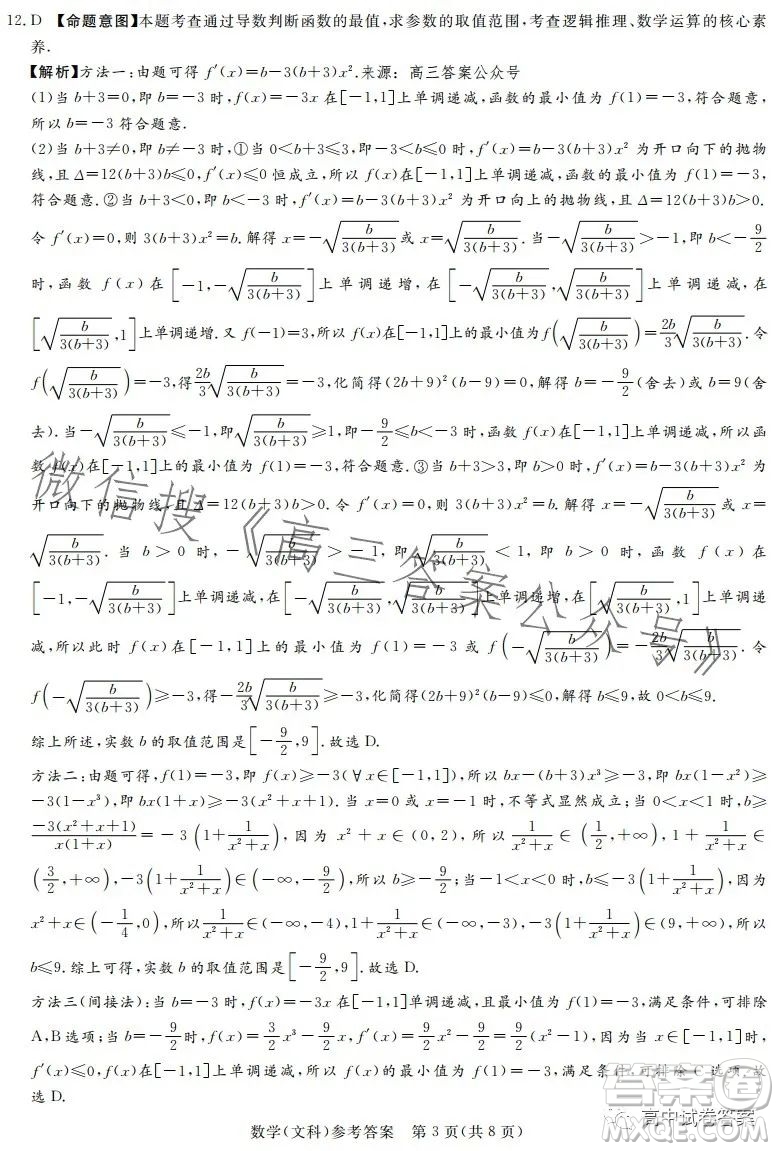 12. D 【命题意图】本题考查通过导数判断函数的最值,求参数的取值范围,考查逻辑推理、数学运算的核心素
养.
【解析】方法一:由题可得 f′(x)=b-3(b+3)x². 来源:高三答案公众号
(1)当 b+3=0,即 b=-3 时,f(x)=-3x 在[-1,1]上单调递减,函数的最小值为 f(1)=-3,符合题意,
所以 b=-3 符合题意.
(2)当 b+3≠0,即 b≠-3 时,①当 0<b+3≤3,即-3<b≤0 时,f′(x)=b-3(b+3)x² 为开口向下的抛物
线,且 Δ=12(b+3)b≤0,f′(x)≤0 恒成立,所以 f(x)在[-1,1]上单调递减,函数的最小值为 f(1)=-3,
符合题意.②当 b+3<0,即 b<-3 时,f′(x)=b-3(b+3)x² 为开口向上的抛物线,且 Δ=12(b+3)b>0.
令 f′(x)=0,则 3(b+3)x²=b. 解得 x=-√(b/(3(b+3))) 或 x=√(b/(3(b+3))). 当-√(b/(3(b+3)))>-1,即 b<-9/2
时,函数 f(x)在[-1,-√(b/(3(b+3)))]上单调递增,在[-√(b/(3(b+3))),√(b/(3(b+3)))]上单调递减,在
[√(b/(3(b+3))),1]上单调递增. 又 f(-1)=3,所以 f(x)在[-1,1]上的最小值为f(√(b/(3(b+3))))=2b/3√(b/(3(b+3))). 令
f(√(b/(3(b+3))))=-3,得2b/3√(b/(3(b+3)))=-3,化简得(2b+9)²(b-9)=0,解得 b=-9/2(舍去)或 b=9(舍
去). 当-√(b/(3(b+3)))≤-1,即√(b/(3(b+3)))≥1,即-9/2≤b<-3 时,函数 f(x)在[-1,1]上单调递减,所以函
数 f(x)在[-1,1]上的最小值为 f(1)=-3,符合题意.③当 b+3>3,即 b>0 时,f′(x)=b-3(b+3)x² 为
开口向下的抛物线,且 Δ=12(b+3)b>0. 令 f′(x)=0,则 3(b+3)x²=b. 解得 x=-√(b/(3(b+3))) 或 x=
√(b/(3(b+3))). 当 b>0 时,-√(b/(3(b+3)))>-1,即√(b/(3(b+3)))<1,即 b>0 时,函数 f(x)在
[-1,-√(b/(3(b+3)))]上单调递减,在[-√(b/(3(b+3))),√(b/(3(b+3)))]上单调递增,在[√(b/(3(b+3))),1]上单调递
减,所以此时 f(x)在[-1,1]上的最小值为 f(1)=-3 或 f(-√(b/(3(b+3))))=-2b/3√(b/(3(b+3))). 令
f(-√(b/(3(b+3))))≥-3,得-2b/3√(b/(3(b+3)))≥-3,化简得(2b+9)²(b-9)≤0,解得 b≤9,故 0<b≤9.
综上所述,实数 b 的取值范围是[-9/2,9]. 故选 D.
方法二:由题可得,f(1)=-3,即 f(x)≥-3(∀x∈[-1,1]),所以 bx-(b+3)x³≥-3,即 bx(1-x²)≥
-3(1-x³),即 bx(1+x)≥-3(x²+x+1). 当 x=0 或 x=-1 时,不等式显然成立;当 0<x<1 时,b≥
-3(x²+x+1)/(x(1+x))=-3(1+1/(x²+x)),因为 x²+x∈(0,2),所以 1/(x²+x)∈(1/2,+∞),1+1/(x²+x)∈
(3/2,+∞),-3(1+1/(x²+x))∈(-∞,-9/2),所以 b≥-9/2;当-1<x<0 时,b≤-3(1+1/(x²+x)),因为
x²+x∈(-1/4,0),所以1/(x²+x)∈(-∞,-4),1+1/(x²+x)∈(-∞,-3),-3(1+1/(x²+x))∈(9,+∞),所以
b≤9. 综上可得,实数 b 的取值范围是[-9/2,9]. 故选 D.
方法三(间接法):当 b=-3 时,f(x)=-3x 在[-1,1]单调递减,且最小值为 f(1)=-3,满足条件,可排除
A、B 选项;当 b=-9/2时,f(x)=3/2x³-9/2x,f′(x)=9/2x²-9/2=9/2(x²-1),因为当 x∈[-1,1]时,
f′(x)≤0,f(x)在[-1,1]上单调递减,所以 f(x)的最小值为 f(1)=-3,满足条件,可排除 C 选项. 故
选 D.
数学(文科)参考答案 第 3 页(共 8 页)
微信搜《高三答案公众号》
高中试卷答案